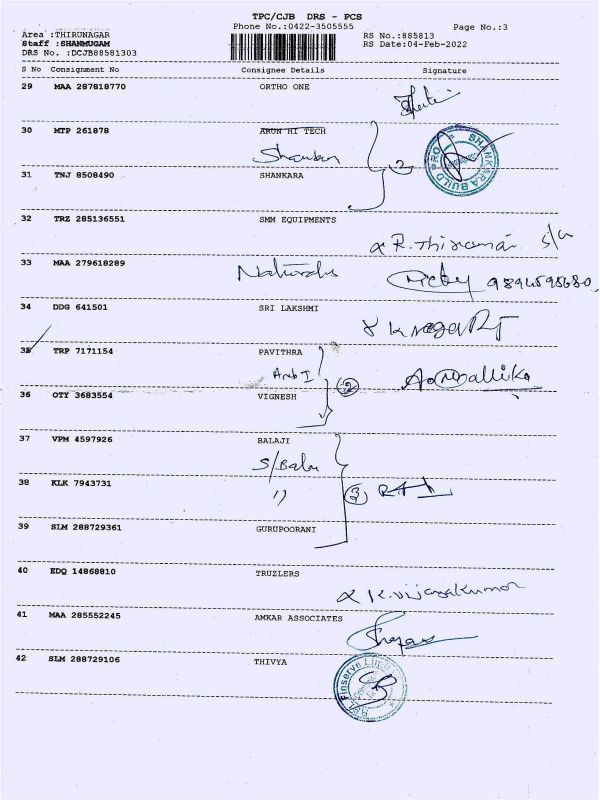 TPC/CJB DRS - PCS
Phone No.:0422-3505555 Page No.:3
Area :THIRUNAGAR RS No.:885813
Staff :SHANMUGAM RS Date:04-Feb-2022
DRS No. :DCJB88581303
S No Consignment No Consignee Details Signature
29 MAA 287818770 ORTHO ONE
30 MTP 261878 ARUN HI TECH
31 TNJ 8508490 SHANKARA
SHANKARA BUILD PRO
32 TRZ 285136551 SMM EQUIPMENTS
33 MAA 279618289 Naturals
34 DDG 641501 SRI LAKSHMI
35 TRP 7171154 PAVITHRA
A. Mallika
36 OTY 3683554 VIGNESH
2
37 VPM 4597926 BALAJI
S/Balaji
38 KLK 7943731 3
39 SLM 288729361 GURUPOORANI
40 EDQ 14868810 TRUZLERS
K. Vijayakumar
41 MAA 285552245 AMKAR ASSOCIATES
42 SLM 288729106 THIVYA
Finserve Limited